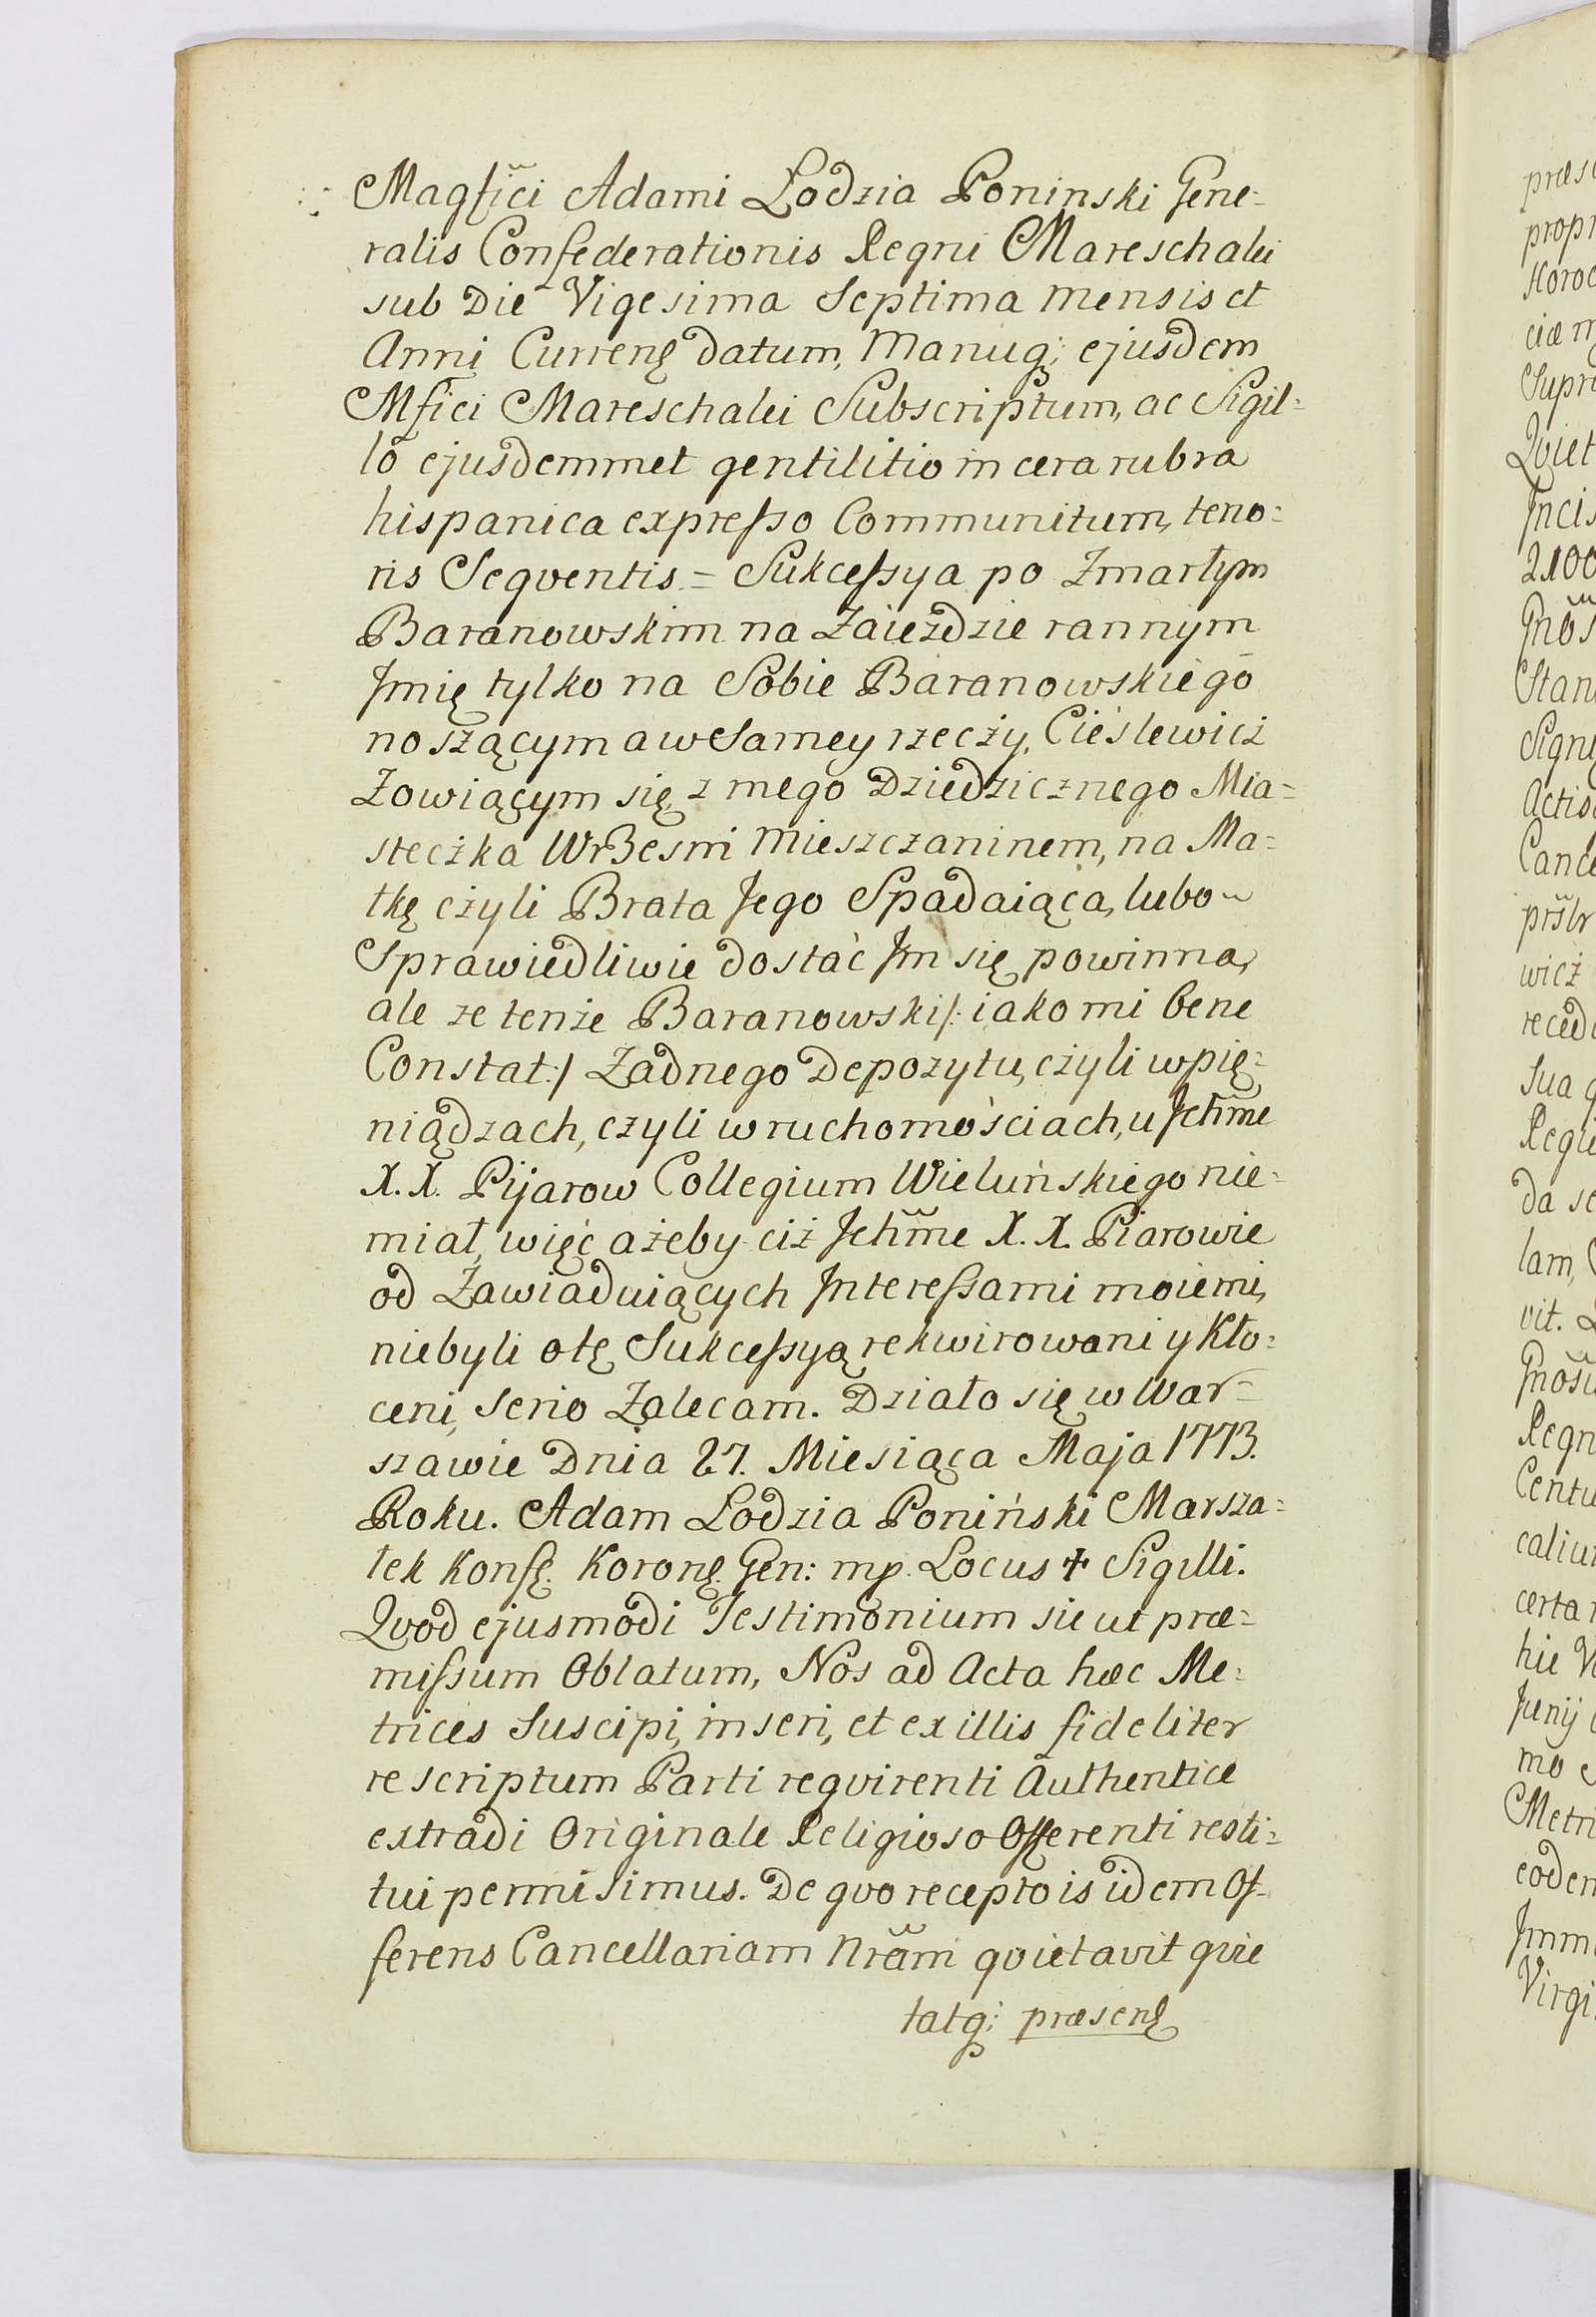 Magfici Adami Lodzia Poninski Gene-
ralis Confederationis Regni Mareschalei
sub Die Vigesima Septima mensis et
Anni Currenę datum, Manuqꝫ ejusdem
Mfici Mareschalei Subscriptum, ac Sigil=
lō ejusdemmet gentilitio in cera rubra
hispanica expresso Communitum, teno=
ris Seqventis = Sukcessya po Zmarłym
Baranowskim na Zaieździe rannym
Jmię tylko na Sobie Baranowskiego
noszącym a w Samey rzeczy, Cieślewicz
Zowiącym się, z mego Dziedzicznego Mia=
steczka Wrzesni Mieszczaninem, na Ma=
tkę czyli Brata Jego Spadaiąca, lubo
Sprawiedliwie dostać Jm się powinna,
ale ze tenże Baranowski /: iako mi bene
Constat :/ Żadnego Depozytu, czyli w pię=
niądzach, czyli w ruchomościach, u Jchm̃e
X. X. Pijarow Collegium Wieluńskiego nie=
miał, więc ażeby ciż Jchm̃e X. X. Piarowie
od Zawiaduiących Interessami moiemi,
niebyli o tę Sukcessyą rekwirowani y kło=
ceni, Serio Zalecam. Działo się w War=
szawie Dnia 27. Miesiąca Maja 1773.
Roku. Adam Lodzia Poniński Marsza=
łek Konfę. Koronę. Gen: mp. Locus ✝ Sigilli.
Qvod ejusmodi Testimonium sic ut præ=
missum Oblatum, Nos ad Acta hæc Me=
trices Suscipi, inseri, et ex illis fideliter
rescriptum Parti reqvirenti Authentice
extradi Originale Religioso Offerenti resti=
tui permisimus. De qvo recepto is idem Of=
ferens Cancellariam Nrãm qvietavit qvie
tatqꝫ præsenę
præs
propr
Koroc
ciæ m
Supre
Qviet
Incis
2100
Gnõs
Stan
Signe
Actis
Cance
prślr
wicż
reced
Sua q
Regu
da se
lam,
vit.
Gnõsu
Regn
Centu
caliu
certa
hic V
Junij
mo
Metri
eoden
Imm
Virgi